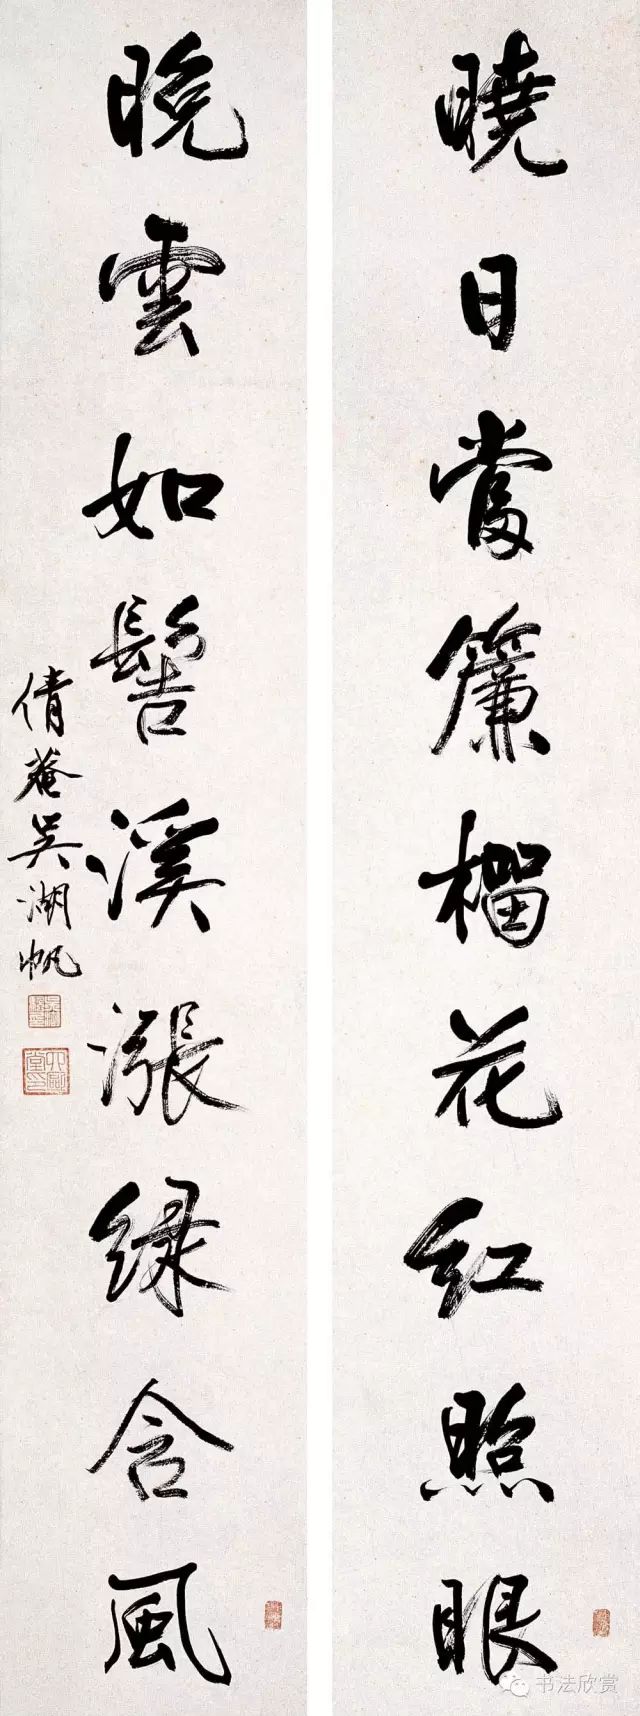 曉日當簾榴花紅照眼
晚雲如髻溪漲綠含風
倩菴吳湖帆
书法欣赏